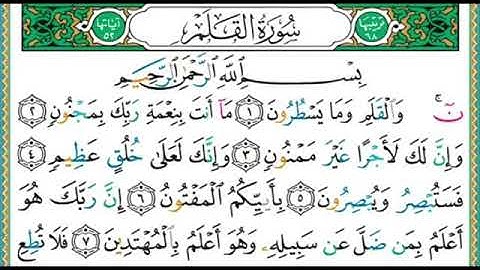 ترتيبها ٦٨ سُورَةُ القَلَمِ آياتها ٥٢
بِسْمِ اللَّهِ الرَّحْمَٰنِ الرَّحِيمِ
نٓ ۚ وَالْقَلَمِ وَمَا يَسْطُرُونَ ١ مَآ أَنتَ بِنِعْمَةِ رَبِّكَ بِمَجْنُونٍ ٢
وَإِنَّ لَكَ لَأَجْرًا غَيْرَ مَمْنُونٍ ٣ وَإِنَّكَ لَعَلَىٰ خُلُقٍ عَظِيمٍ ٤
فَسَتُبْصِرُ وَيُبْصِرُونَ ٥ بِأَييِّكُمُ الْمَفْتُونُ ٦ إِنَّ رَبَّكَ هُوَ
أَعْلَمُ بِمَن ضَلَّ عَن سَبِيلِهِۦ وَهُوَ أَعْلَمُ بِالْمُهْتَدِينَ ٧ فَلَا تُطِعِ